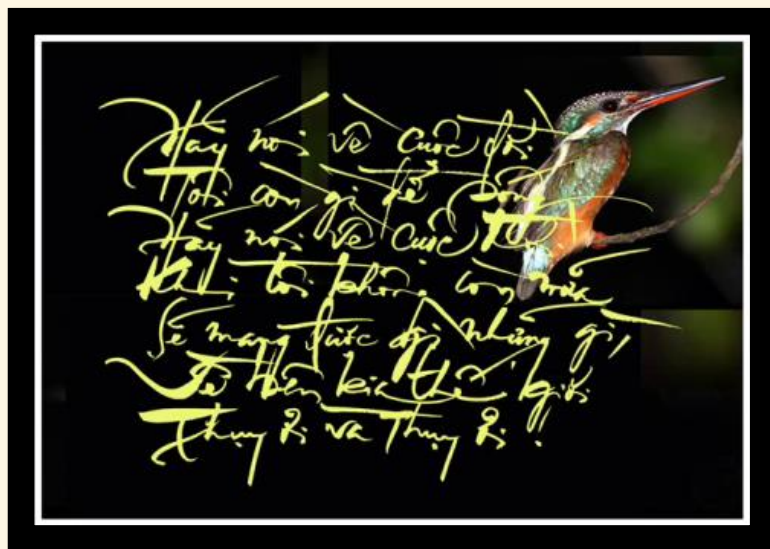 Hãy nói về cuộc đời
Tôi còn gì để sống
Hãy nói về cuộc đời
Khi tôi không còn nữa
Sẽ mang được đi những gì,
Về bên kia thế giới
Thụy ơi và Thụy ơi !